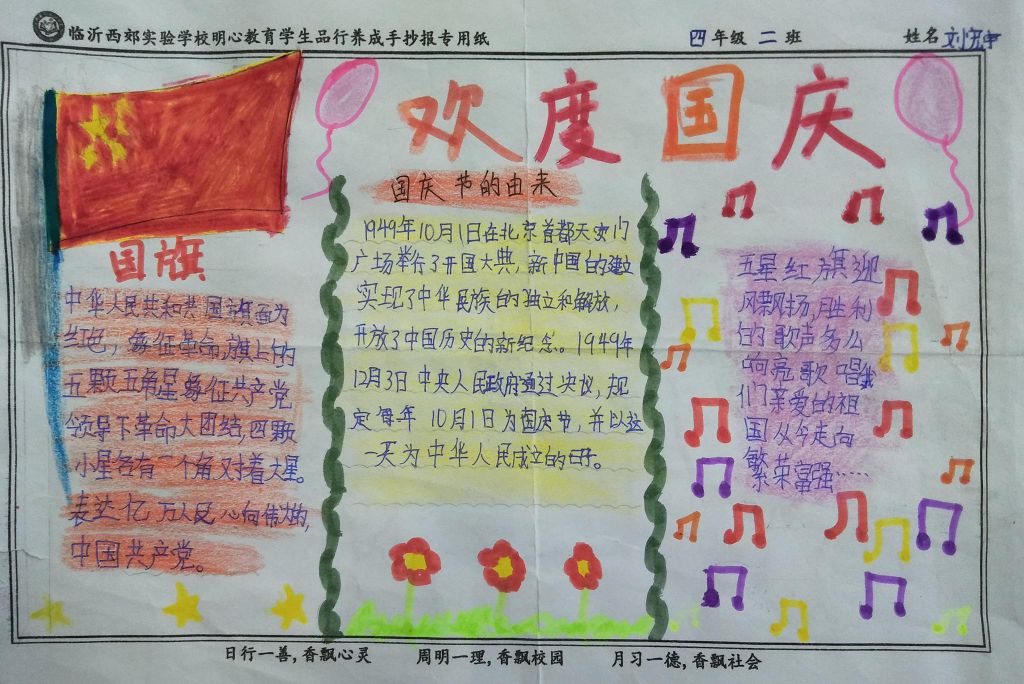 临沂西郊实验学校明心教育学生品行养成手抄报专用纸
四年级二班
姓名刘
欢度国庆
国旗
中华人民共和共国旗面为
红色，象征革命，旗上的
五颗五角星象征共产党
领导下革命大团结，四颗
小星各有一个角对着大星。
表达亿万人民心向伟大的，
中国共产党。
国庆节的由来
1949年10月1日在北京首都天安门
广场举行了开国大典，新中国的建立
实现了中华民族的独立和解放，
开放了中国历史的新纪念。1949年
12月3日中央人民政府通过决议，规
定每年10月1日为国庆节，并以这
一天为中华人民成立的日子。
五星红旗迎
风飘扬，胜利
的歌声多么
响亮歌唱我
们亲爱的祖
国从今走向
繁荣富强……
日行一善，香飘心灵 周明一理，香飘校园 月习一德，香飘社会